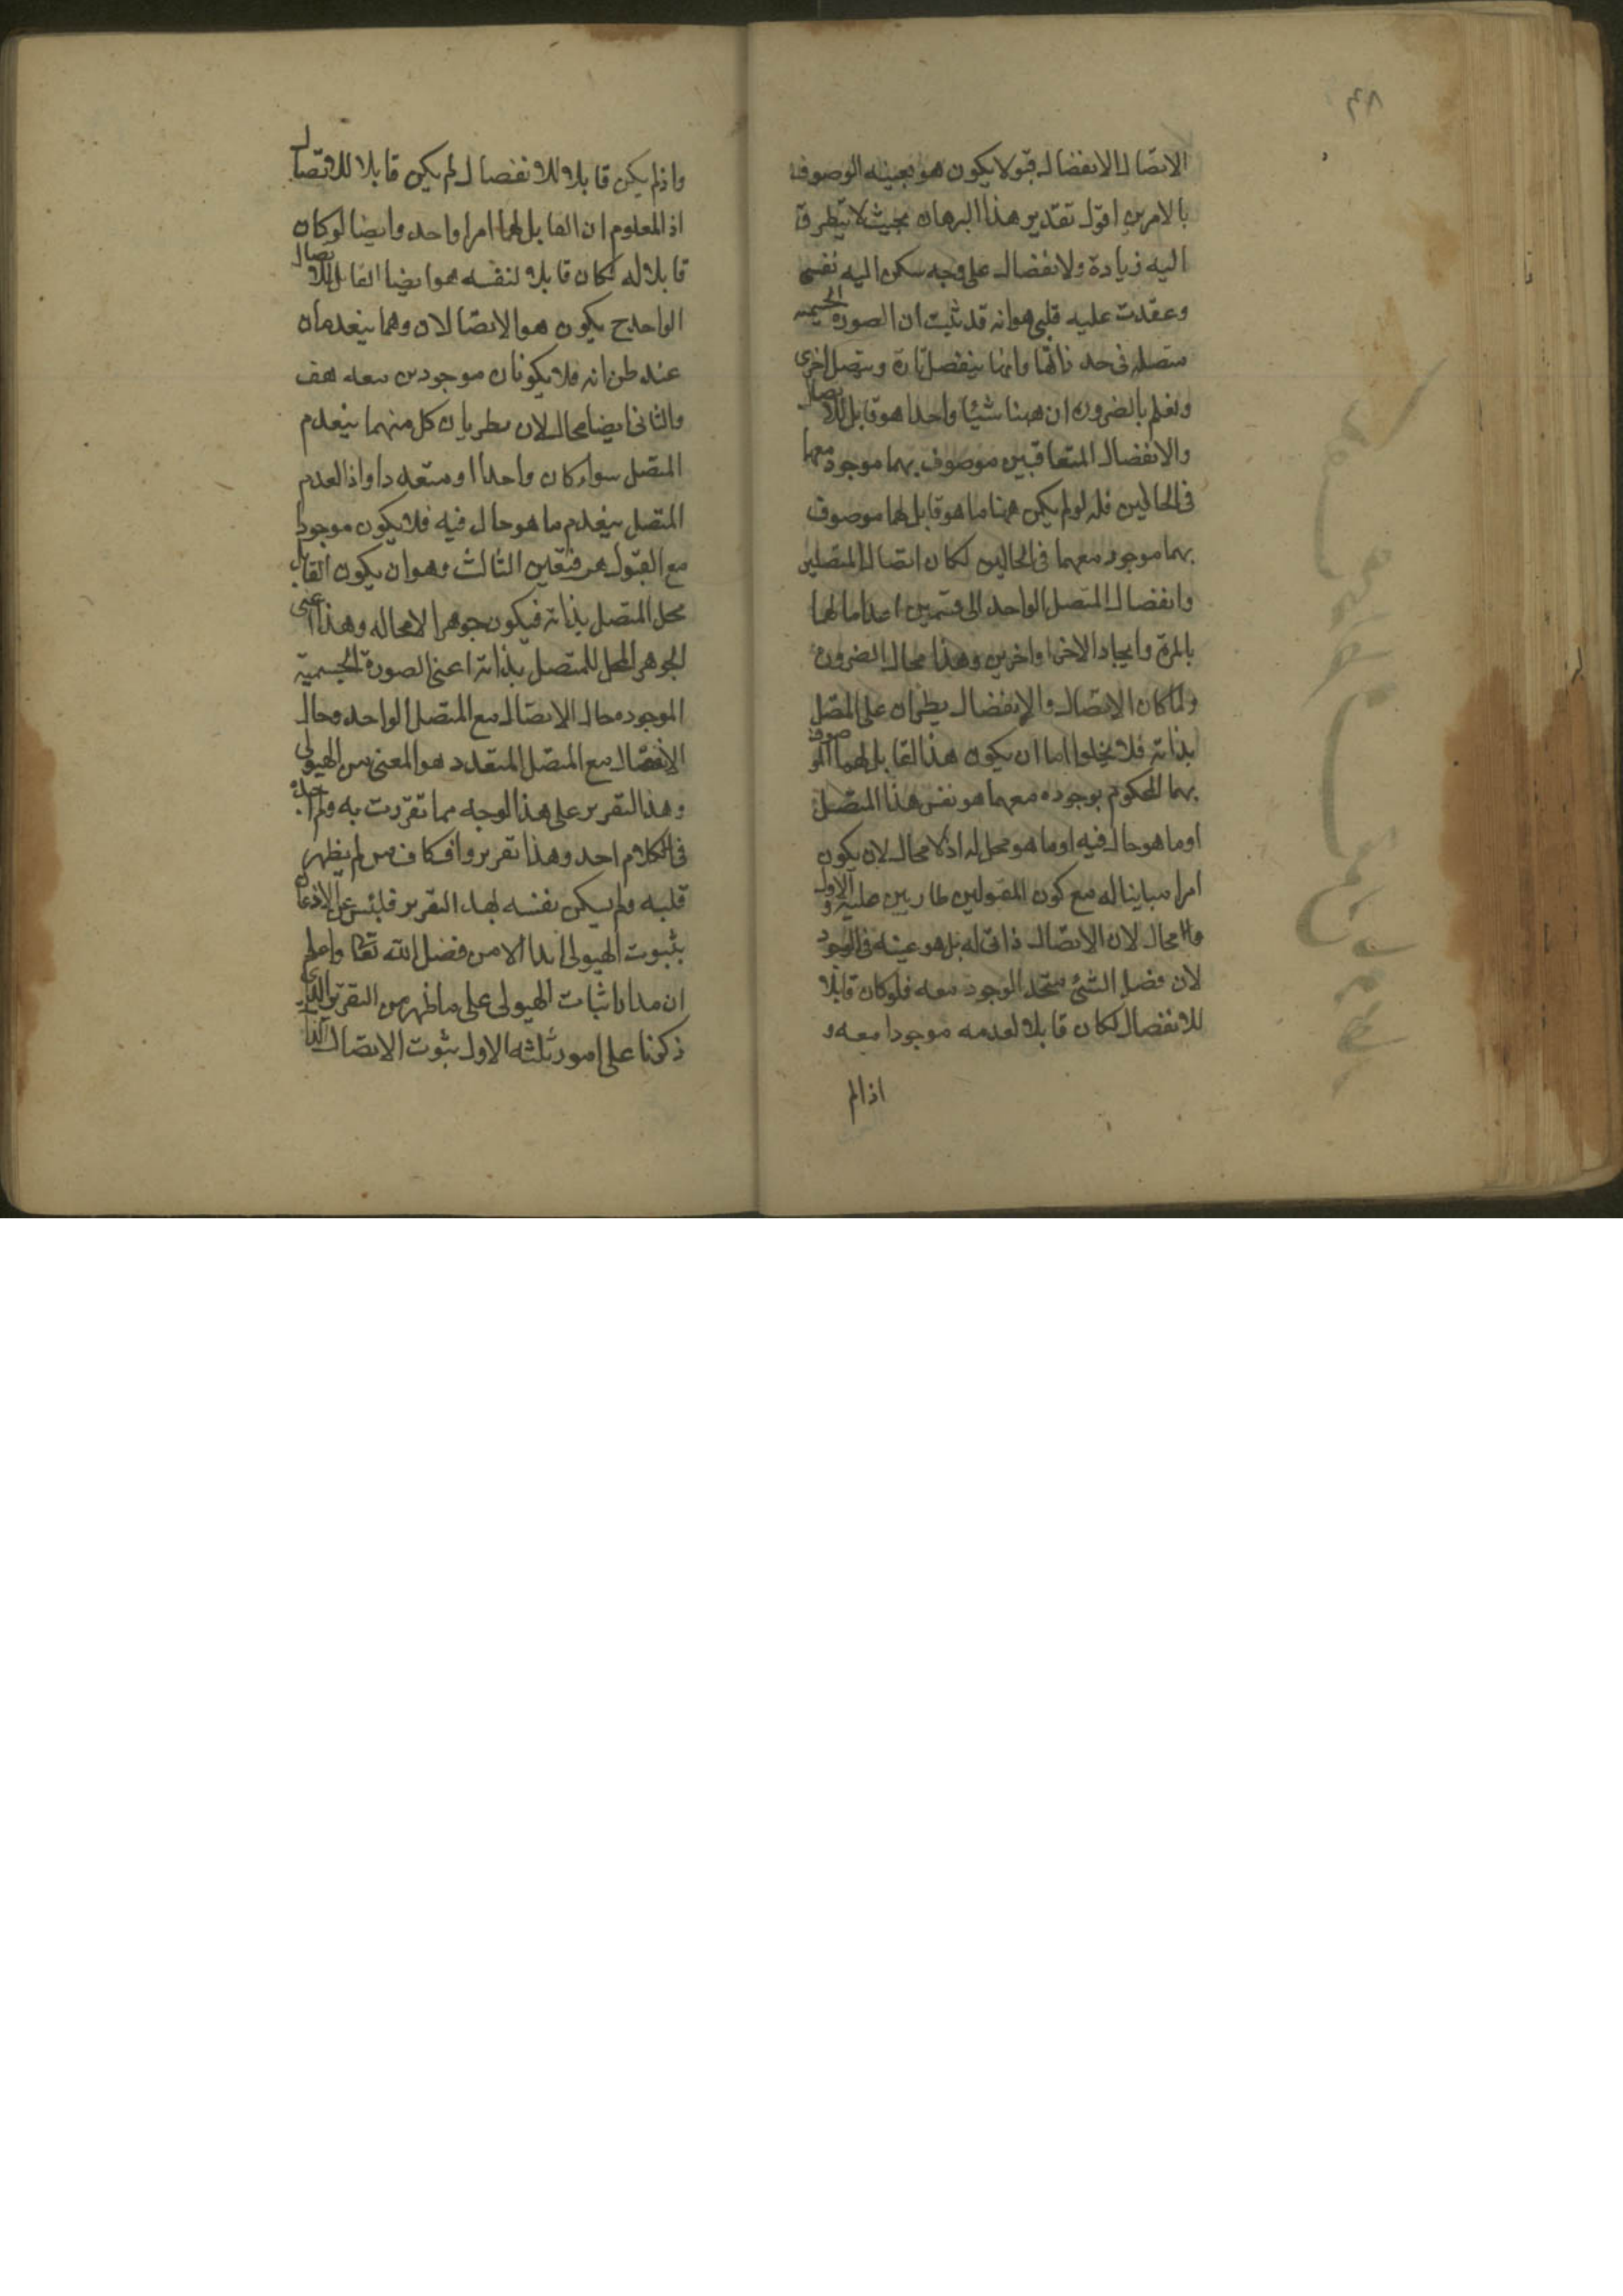 ٤٨
الاتصال الانفصال قبولا يكون هو بعينه الموصوف
بالامرين اقول تقدير هذا البرهان بحيث لا يتطرق
اليه زيادة ولا نفصال على وجه سكن اليه نفسى
وعقدت عليه قلبى هو انه قد ثبت ان الصورة الجسمية
متصله فى حد ذاتها وانها ينفصل تارة ويتصل اخرى
ونعلم بالضرورة ان ههنا شيئا واحدا هو قابل للاتصال
والانفصال المتعاقبين موصوف بهما موجود معهما
فى الحالين فانه لو لم يكن ههنا ما هو قابل لهما موصوف
بهما موجود معهما فى الحالين لكان اتصال المتصلين
وانفصال المتصل الواحد الى قسمين اعداما لهما
بالمرة وايجاد الاخر او اخرين وهذا محال بالضرورة
ولما كان الاتصال والانفصال يطرأن على المتصل
بذاته فلا يخلوا اما ان يكون هذا القابل لهما الموصوف
بهما المحكوم بوجوده معهما هو نفس هذا المتصل
او ما هو حال فيه او ما هو محل له اذ لا محال لان يكون
امرا مباينا له مع كون المقبولين طاريين عليه والاول
محال لان الاتصال ذاتى له بل هو عينه فى الوجود
لان فصل الشئ متحد الوجود معه فلو كان قابلا
للانفصال لكان قابلا لعدمه موجودا معه و
اذا لم
واذ لم يكن قابلا للانفصال لم يكن قابلا للاتصال
اذ المعلوم ان القابل لهما امرا واحد وايضا لو كان
قابلا له لكان قابلا لنفسه هو ايضا القابل للاتصال
الواحد ح يكون هو الاتصالان وهما ينعدمان
عند طريانه فلا يكونان موجودين معه هف
والثانى ايضا محال لان بطريان كل منهما ينعدم
المتصل سواء كان واحدا او متعددا واذا انعدم
المتصل ينعدم ما هو حال فيه فلا يكون موجودا
مع القبول هف فتعين الثالث وهو ان يكون القابل
محل المتصل بذاته فيكون جوهرا لا محاله وهذا اعنى
الجوهر المحل للمتصل بذاته اعنى الصورة الجسمية
الموجود حال الاتصال مع المتصل الواحد وحال
الانفصال مع المتصل المتعدد هو المعنى من الهيولى
وهذا التقرير على هذا الوجه مما تفردت به ولم
فى الكلام احد وهذا تقرير واف كاف من لم يظهر
قلبه ولم يسكن نفسه لهذا التقرير فليئس عن الاذعان
بثبوت الهيولى ابدا الا من فضل الله تعا واعلم
ان مدار اثبات الهيولى على ما ظهر من التقرير الذى
ذكرنا على امور ثلثه الاول ثبوت الاتصال الذا